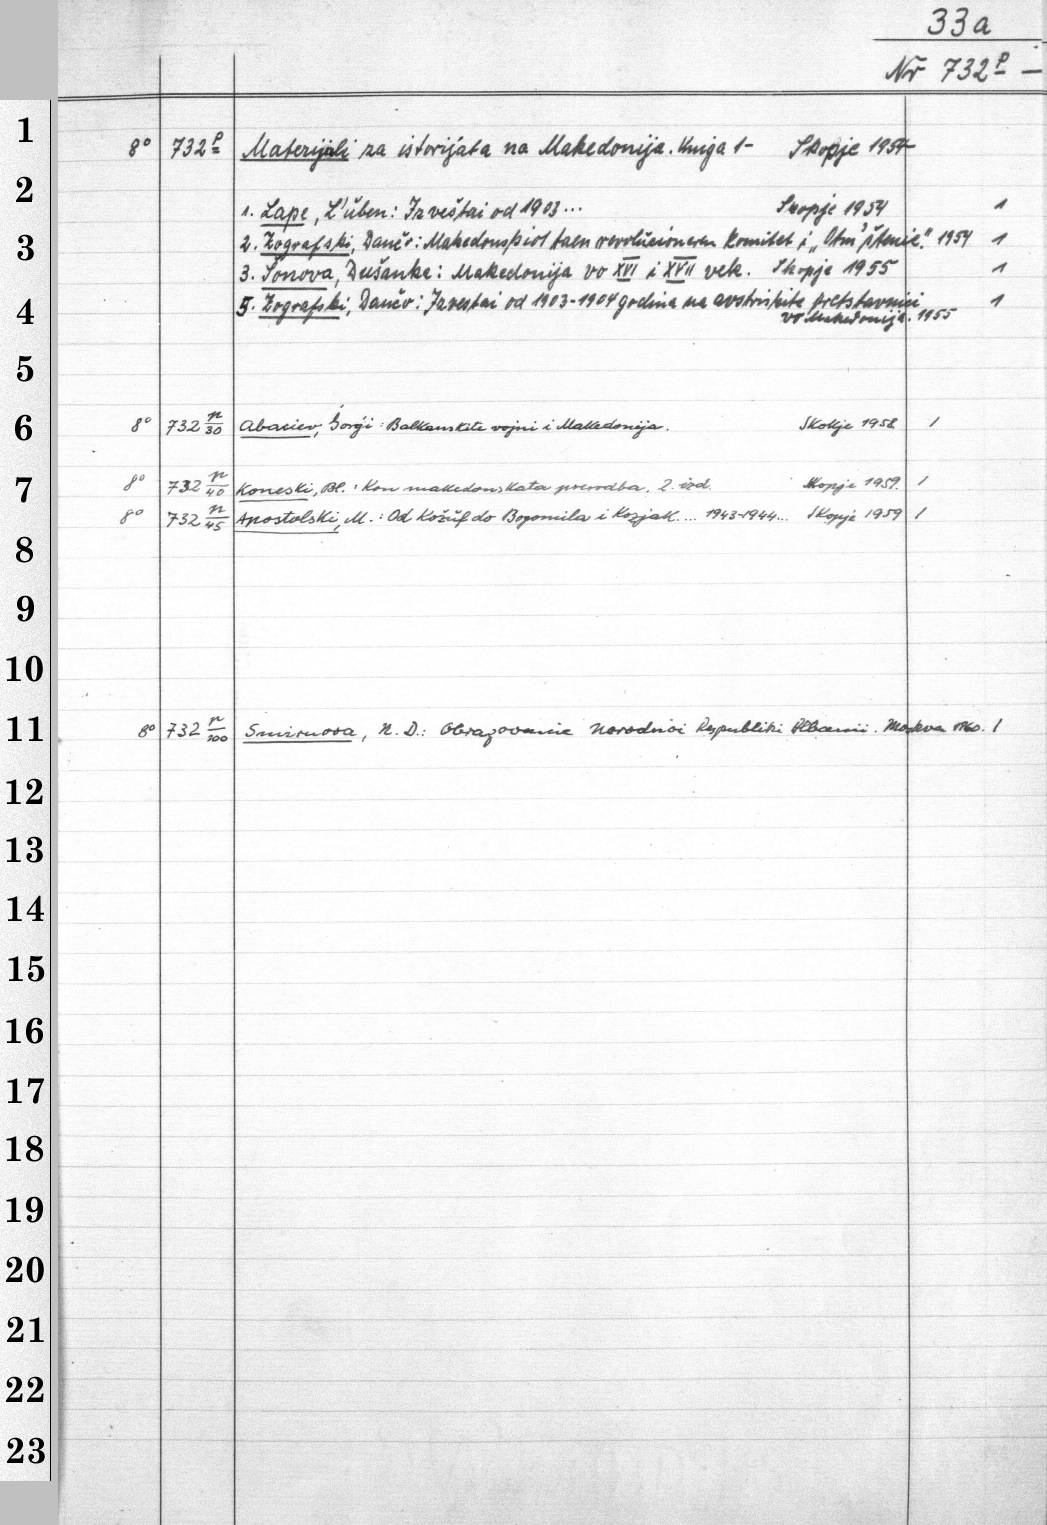 33a
Nr 732 P —
1
8° 732 P Materijali za istorijata na Makedonija. Kniga 1- Skopje 1954-
2
1. Lape, L'uben: Izveštai od 1903... Skopje 1954 1
3
2. Zografski, Dančo: Makedonskiot taen revolucioneren komitet i „ 1954 1
3. Šonova, Dušanka: Makedonija vo XVI i XVII vek. Skopje 1955 1
4
5. Zografski, Dančo: Izvestai od 1903-1904 godina na avstriskite pretstavnici 1
vo Makedonija. 1955
5
6 8° 732 n/30 Abaciev, Gorǵi: Balkanskite vojni i Makedonija. Skopje 1958 1
7 8° 732 n/40 Koneski, Bl.: Kon makedonskata prerodba. 2. izd. Skopje 1959. 1
8° 732 n/45 Apostolski, M.: Od Kožuf do Bogomila i Kozjak... 1943-1944... Skopje 1959 1
8
9
10
11 8° 732 n/100 Smirnova, N. D.: Obrazovanie Narodnoi Respubliki Albanii. Moskva 1960. 1
12
13
14
15
16
17
18
19
20
21
22
23